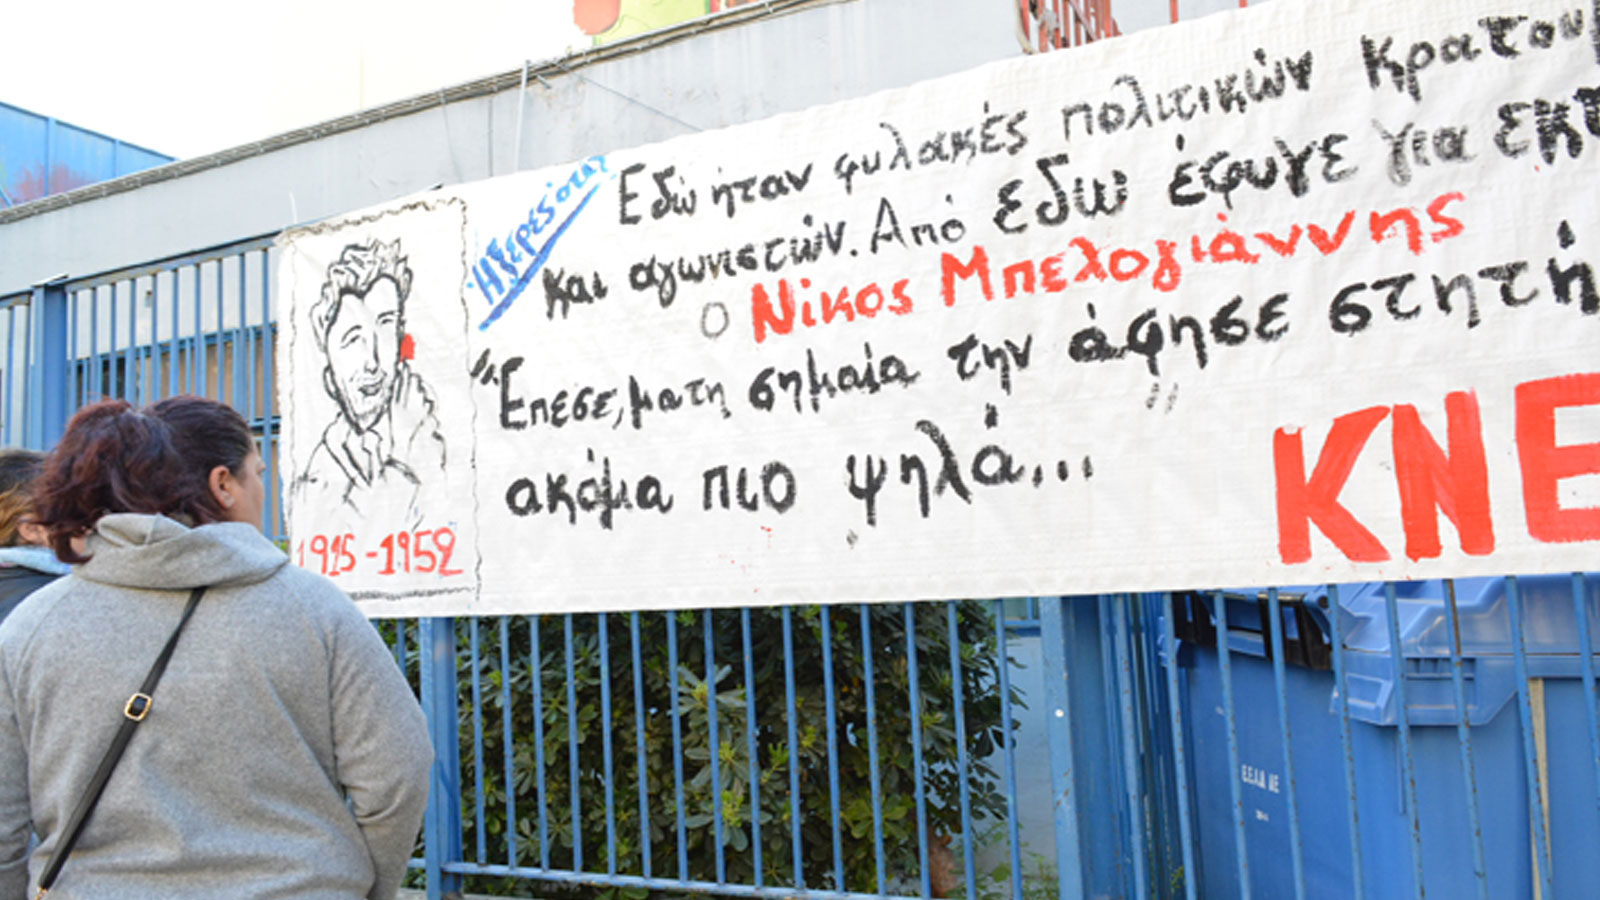 Ήξερες ότι;
Εδώ ήταν φυλακές πολιτικών κρατου
και αγωνιστών. Από εδώ έφυγε για εκτ
ο Νίκος Μπελογιάννης
"Έπεσε, μα τη σημαία την άφησε στητή
ακόμα πιο ψηλά..."
ΚΝΕ
1915-1952
Ε.Ε.Λ.Δ ΑΕ